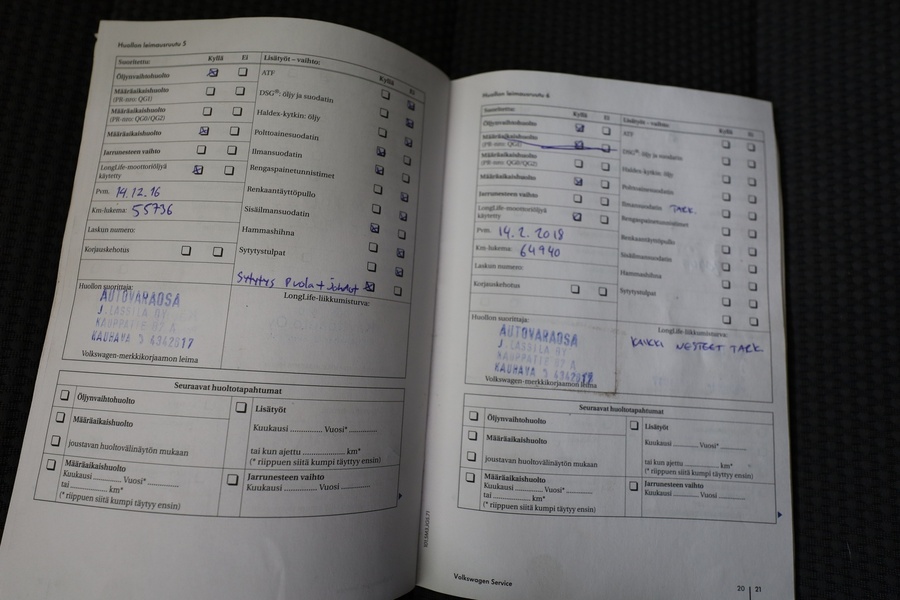 Huollon leimausruutu 5
Suoritettu: Kyllä Ei
Öljynvaihtohuolto
Määräaikaishuolto
(PR-nro: QG1)
Määräaikaishuolto
(PR-nro: QG0/QG2)
Määräaikaishuolto
Jarrunesteen vaihto
LongLife-moottoriöljyä
käytetty
Pvm. 14.12.16
Km-lukema: 55736
Laskun numero:
Korjauskehotus
Huollon suorittaja:
AUTOVARAOSA
J. LASSILA OY
KAUPPATIE 92 A
KAUHAVA
Volkswagen-merkkikorjaamon leima
Lisätyöt – vaihto: Kyllä Ei
ATF
DSG®: öljy ja suodatin
Haldex-kytkin: öljy
Polttoainesuodatin
Ilmansuodatin
Rengaspainetunnistimet
Renkaantäyttöpullo
Sisäilmansuodatin
Hammashihna
Sytytystulpat
Sytytys Puola + Johdot
LongLife-liikkumisturva:
Seuraavat huoltotapahtumat
Öljynvaihtohuolto
Määräaikaishuolto
joustavan huoltovälinäytön mukaan
Määräaikaishuolto
Kuukausi ............. Vuosi* ...........
tai ............... km*
(* riippuen siitä kumpi täytyy ensin)
Lisätyöt
Kuukausi ............. Vuosi* ...........
tai kun ajettu ............... km*
(* riippuen siitä kumpi täytyy ensin)
Jarrunesteen vaihto
Kuukausi ............. Vuosi ...........
Huollon leimausruutu 6
Suoritettu: Kyllä Ei
Öljynvaihtohuolto
Määräaikaishuolto
(PR-nro: QG1)
Määräaikaishuolto
(PR-nro: QG0/QG2)
Määräaikaishuolto
Jarrunesteen vaihto
LongLife-moottoriöljyä
käytetty
Pvm. 14.2.2018
Km-lukema: 64940
Laskun numero:
Korjauskehotus
Huollon suorittaja:
AUTOVARAOSA
J. LASSILA OY
KAUPPATIE 92 A
KAUHAVA
Volkswagen-merkkikorjaamon leima
Lisätyöt – vaihto: Kyllä Ei
ATF
DSG®: öljy ja suodatin
Haldex-kytkin: öljy
Polttoainesuodatin
Ilmansuodatin TARK.
Rengaspainetunnistimet
Renkaantäyttöpullo
Sisäilmansuodatin
Hammashihna
Sytytystulpat
LongLife-liikkumisturva:
KAIKKI NESTEET TARK.
Seuraavat huoltotapahtumat
Öljynvaihtohuolto
Määräaikaishuolto
joustavan huoltovälinäytön mukaan
Määräaikaishuolto
Kuukausi ............ Vuosi* ..........
tai ............... km*
(* riippuen siitä kumpi täytyy ensin)
Lisätyöt
Kuukausi .......... Vuosi* ..........
tai kun ajettu ............. km*
(* riippuen siitä kumpi täytyy ensin)
Jarrunesteen vaihto
Kuukausi .......... Vuosi ..........
Volkswagen Service
20 | 21